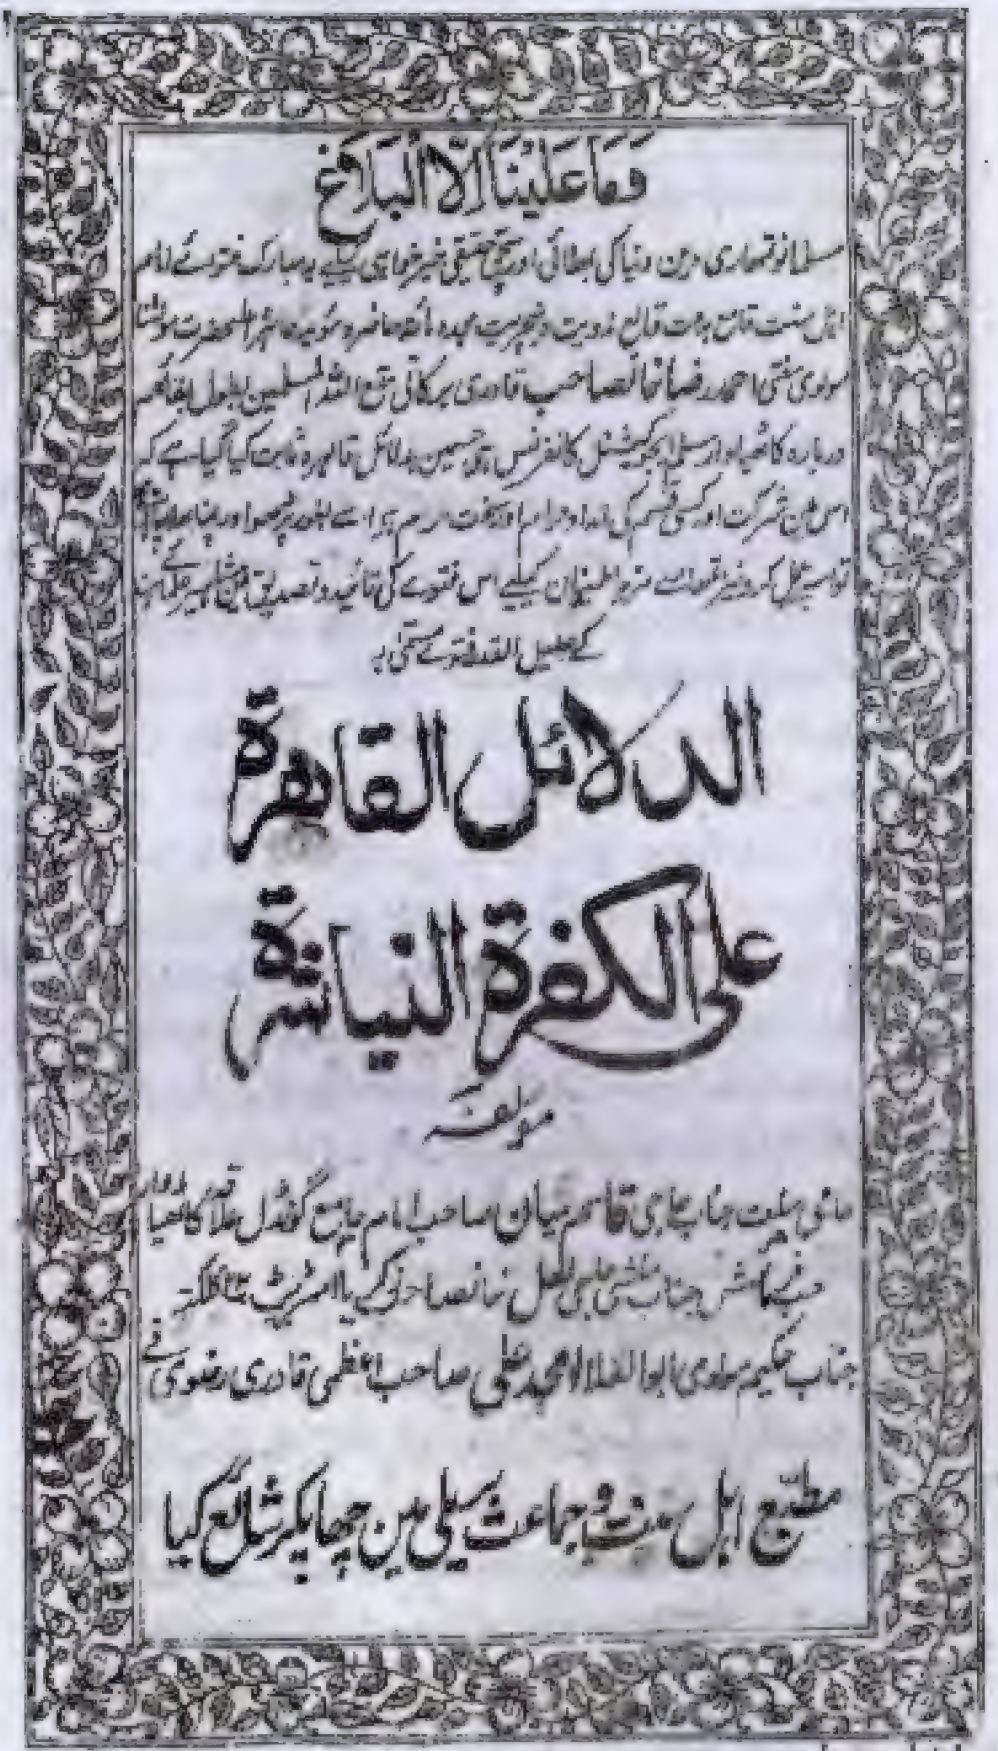 وَمَا عَلَیْنَا اِلَّا الْبَلَاغ
مسلمانو تمھاری دین دنیا کی بھلائی اور سچی حقیقی خیرخواہی کیلیے یہ مبارک فتوے امام
اہل سنت قامع بدعت قالع ندویت ونیچریت مجدد مائۃ حاضرہ مؤید ملت طاہرہ اعلیحضرت مولٰنا
مولوی مفتی احمد رضا خانصاحب قادری برکاتی متع اللہ المسلمین بطول بقائہم
دربارہ کاٹھیاوار مسلم ایجوکیشنل کانفرنس جسمین بدلائل قاہرہ ثابت کیا گیا ہے کہ
اس میں شرکت اور کسی قسم کی امداد حرام اور سخت حرام ہے اسے بغور پڑھو اور
تو اسپر عمل کرو نیز مزید اطمینان کیلیے اس فتوے کی تائید و تصدیق مین مشاہیر علمائے ہند
کے جلیل القدر فتوے مسمّٰی بہ
الدلائل القاھرۃ
علی الکفرۃ النیاشرۃ
مولفہ
حامی سنت جناب حاجی قاسم میان صاحب امام جامع گونڈل علاقہ کاٹھیاوار
حسب فرمائش جناب منشی حاجی لعل خانصاحب کلکتہ
جناب حکیم مولوی ابوالعلا امجد علی صاحب اعظمی قادری رضوی نے
مطبع اہل سنت وجماعت بریلی مین چھاپکر شائع کیا